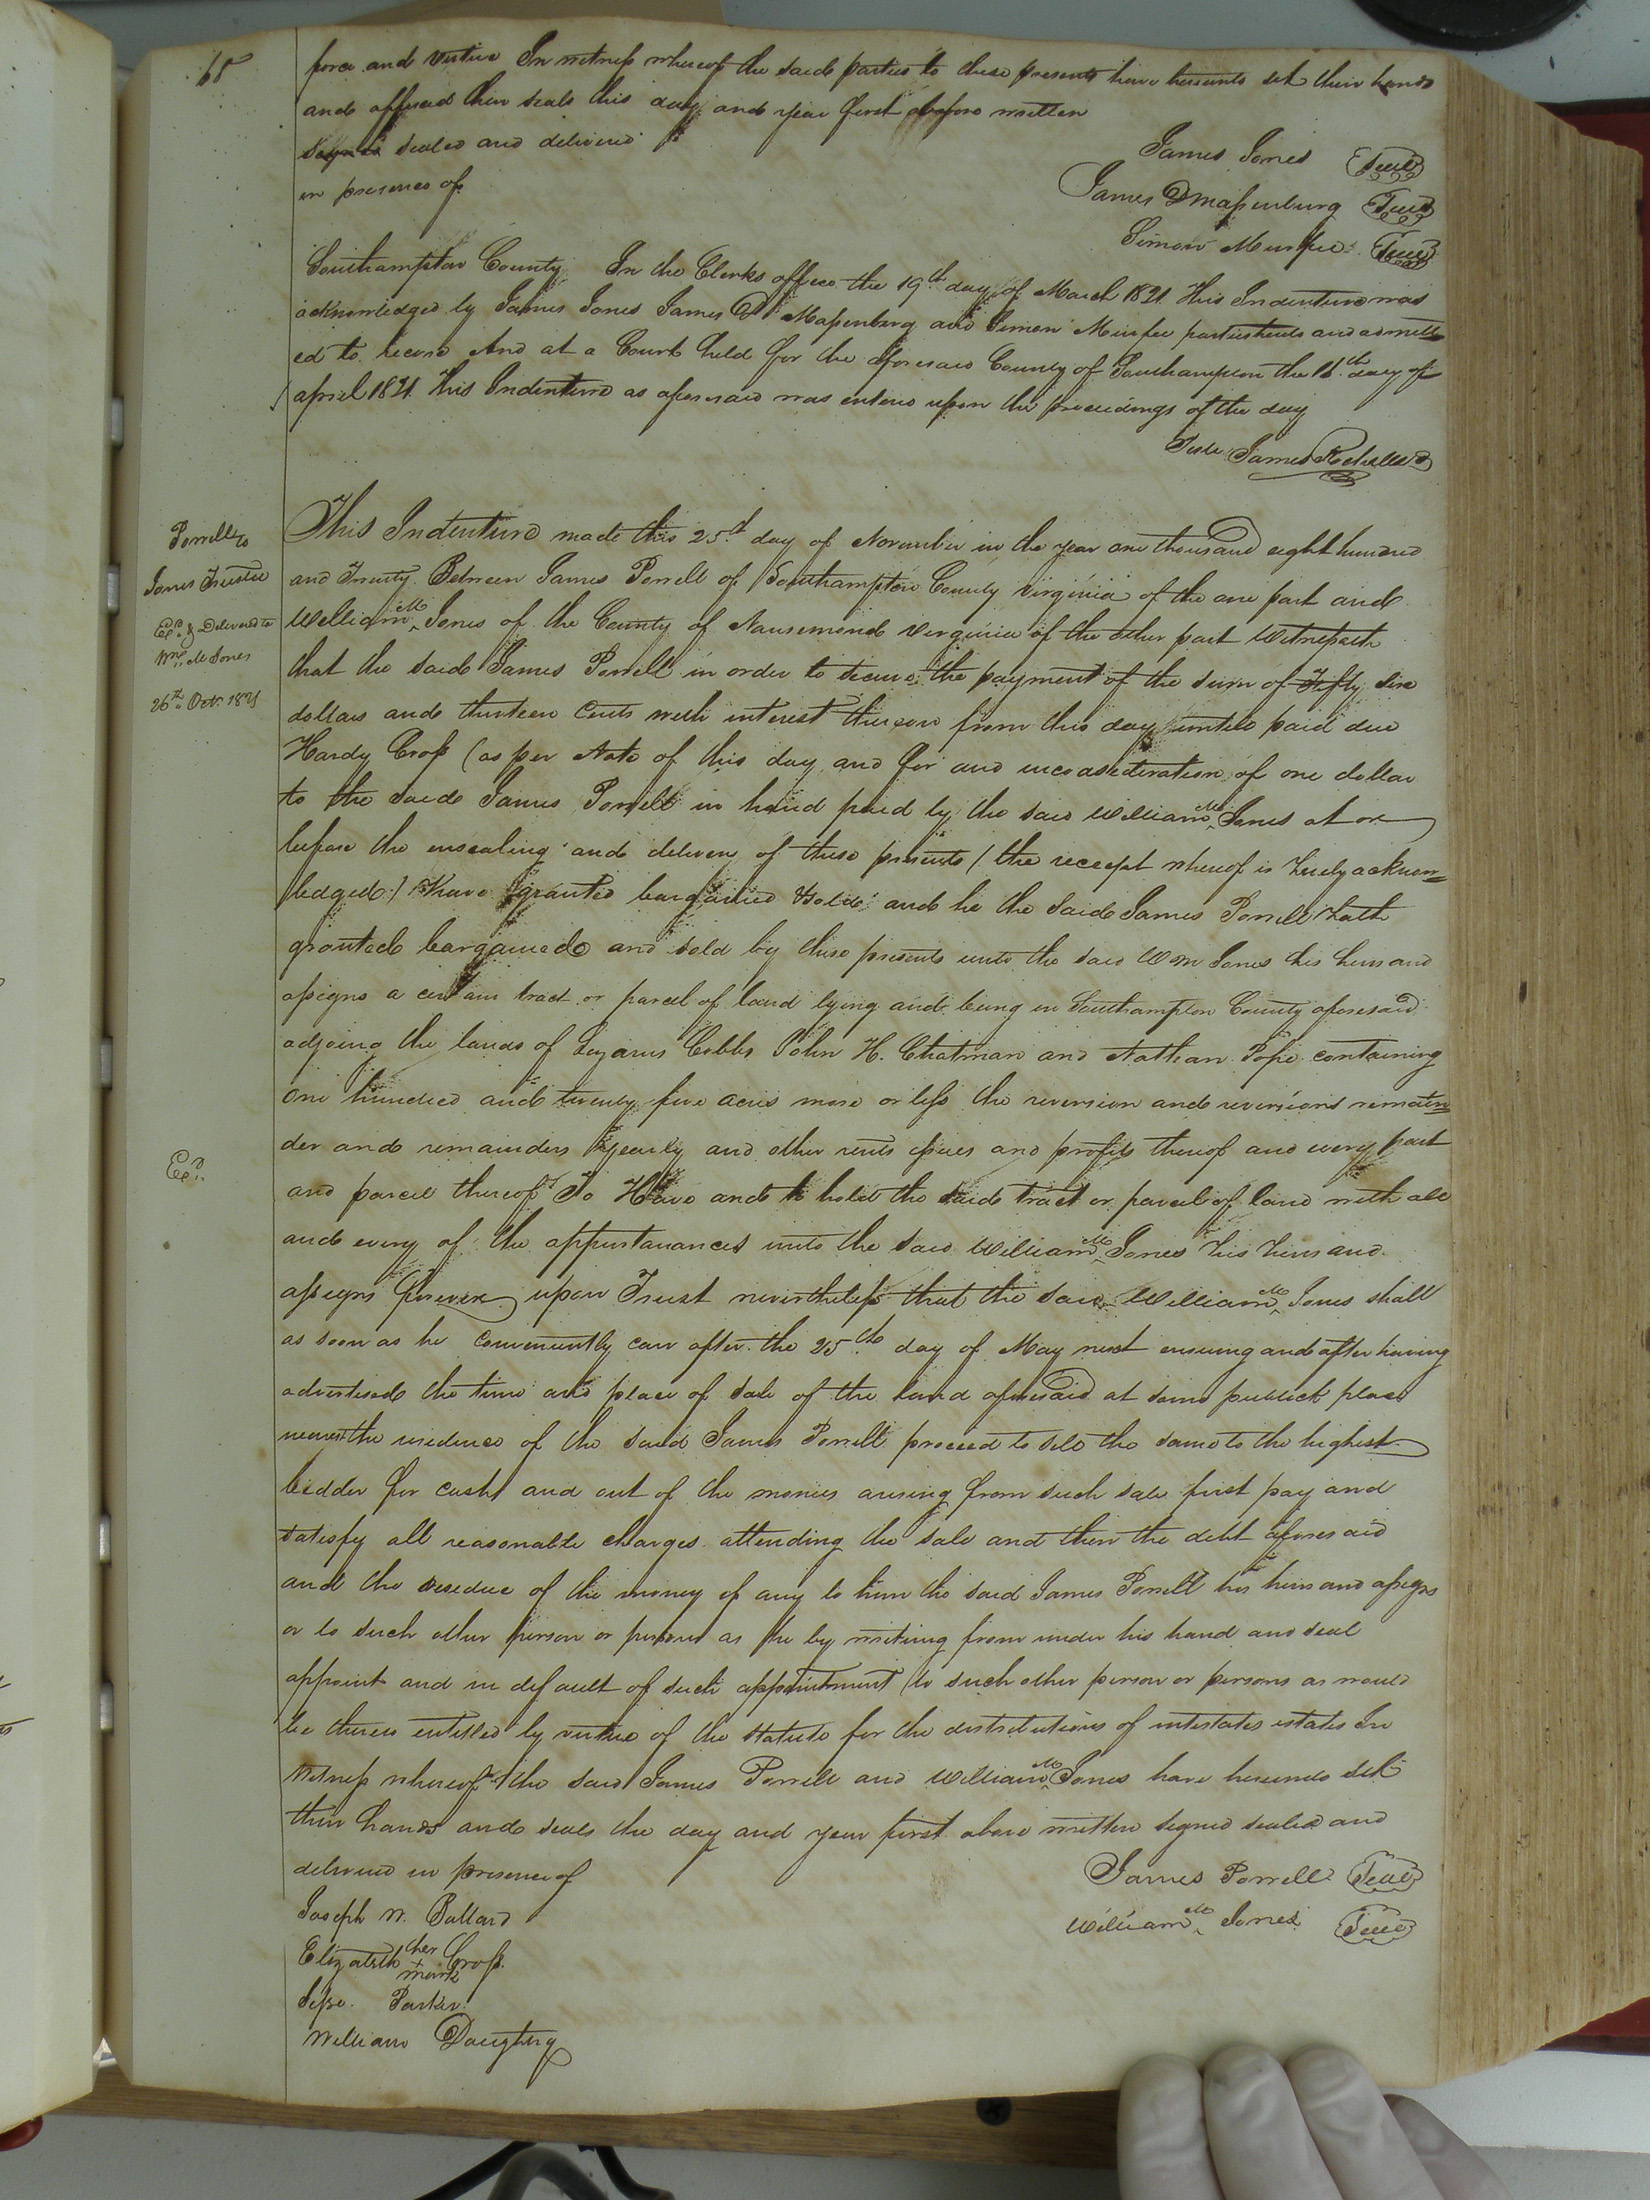 68
force and virtue In witness whereof the said parties to these presents have hereunto set their hands
and affixed their seals this day and year first before written
Signed sealed and delivered
in presence of
James Jones Seal
James D Massenburg Seal
Simon Murfee Seal
Southampton County In the Clerks office the 19th day of March 1821 This Indenture was
acknowledged by James Jones James D Massenburg and Simon Murfee parties thereto and admitt
ed to record And at a Court held for the aforesaid County of Southampton the 16th day of
april 1821 This Indenture as aforesaid was entered upon the proceedings of the day
Teste James Rochelle
Porrell to
Jones Trustee
Exd & Delivered to
Wm M Jones
26th Octr 1821
This Indenture made this 25d day of November in the year one thousand eight hundred
and Twenty Between James Porrell of Southampton County Virginia of the one part and
William M Jones of the County of Nansemond Virginia of the other part Witnesseth
that the said James Porrell in order to secure the payment of the sum of Fifty six
dollars and thirteen Cents with interest thereon from this day until paid due
Hardy Cross (as per Note of this day and for and inconsideration of one dollar
to the said James Porrell in hand paid by the said William M Jones at or
before the ensealing and delivery of these presents (the receipt whereof is hereby acknow=
ledged) have granted bargained & sold and he the said James Porrell hath
granted bargained and sold by these presents unto the said Wm Jones his heirs and
assigns a certain tract or parcel of land lying and being in Southampton County aforesaid
adjoing the lands of Lazarus Cobbs John H. Chatman and Nathan Pope containing
One hundred and twenty five acres more or less the reversion and reversions remain=
der and remainders yearly and other rents issues and profits thereof and every part
Exd
and parcel thereof To Have and to hold the said tract or parcel of land with all
and every of the appurtanances unto the said William M Jones his heirs and
assigns forever upon Trust nevertheless that the said William M Jones shall
as soon as he conveniently can after the 25th day of May next ensuing and after having
advertised the time and place of sale of the land aforesaid at some publick place
nearest the residence of the said James Porrell proceed to sell the same to the highest
bidder for cash and out of the monies arising from such sale first pay and
satisfy all reasonable charges attending the sale and then the debt aforesaid
and the residue of the money if any to him the said James Porrell his heirs and assigns
or to such other person or persons as he by writing from under his hand and seal
appoint and in default of such appointment to such other person or persons as would
be thereto entitled by virtue of the statute for the distributions of intestates estates In
Witness whereof the said James Porrell and William M Jones have hereunto set
their hands and seals the day and year first above written signed sealed and
delivered in presence of
James Porrell Seal
William M Jones Seal
Joseph W. Ballard
Elizabeth her + mark Cross
Parker
William Daughtry